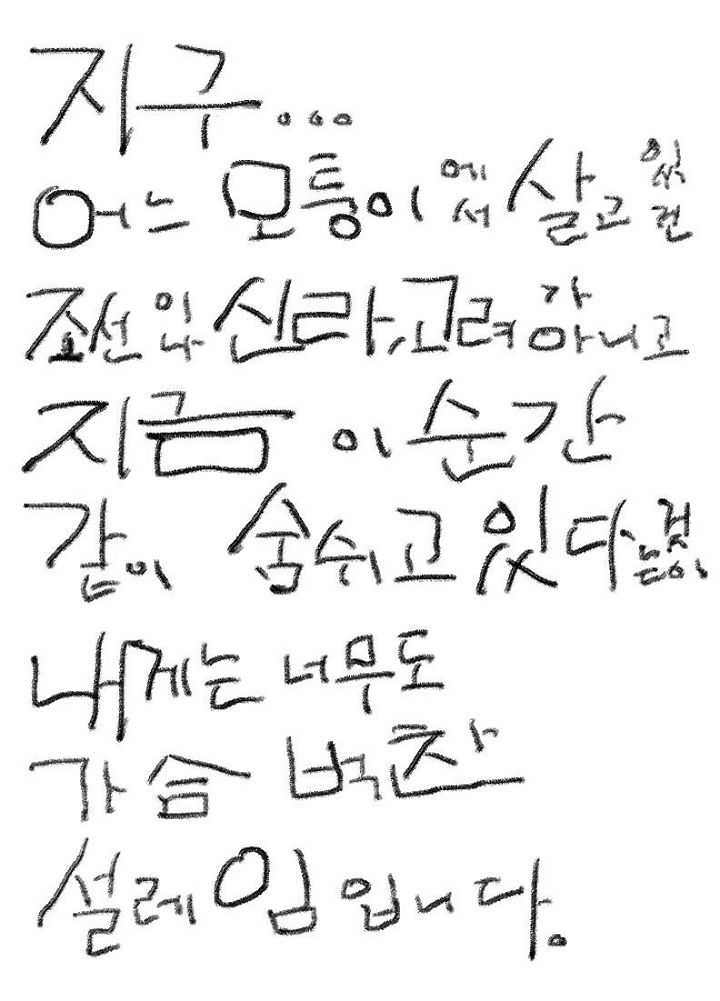 지구...
어느 모퉁이에서 살고 있건
조선이나 신라, 고려가 아니고
지금 이 순간
같이 숨쉬고 있다는 것이
내게는 너무도
가슴 벅찬
설레임입니다.